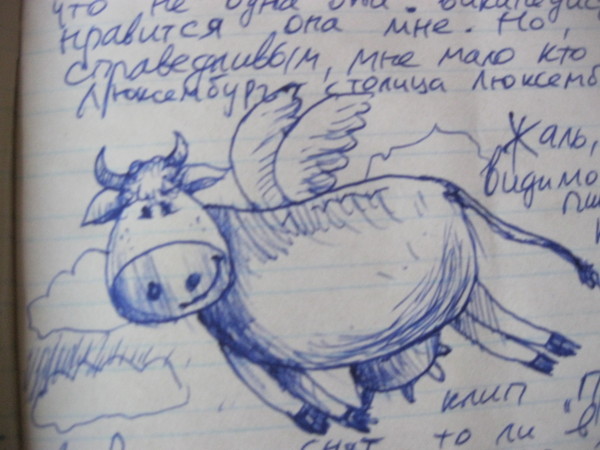 что не одна она.
нравится она мне. Но,
справедливым, мне мало кто
Люксембург столица Люксемб
Жаль,
видимо
клип "П
снят то ли в